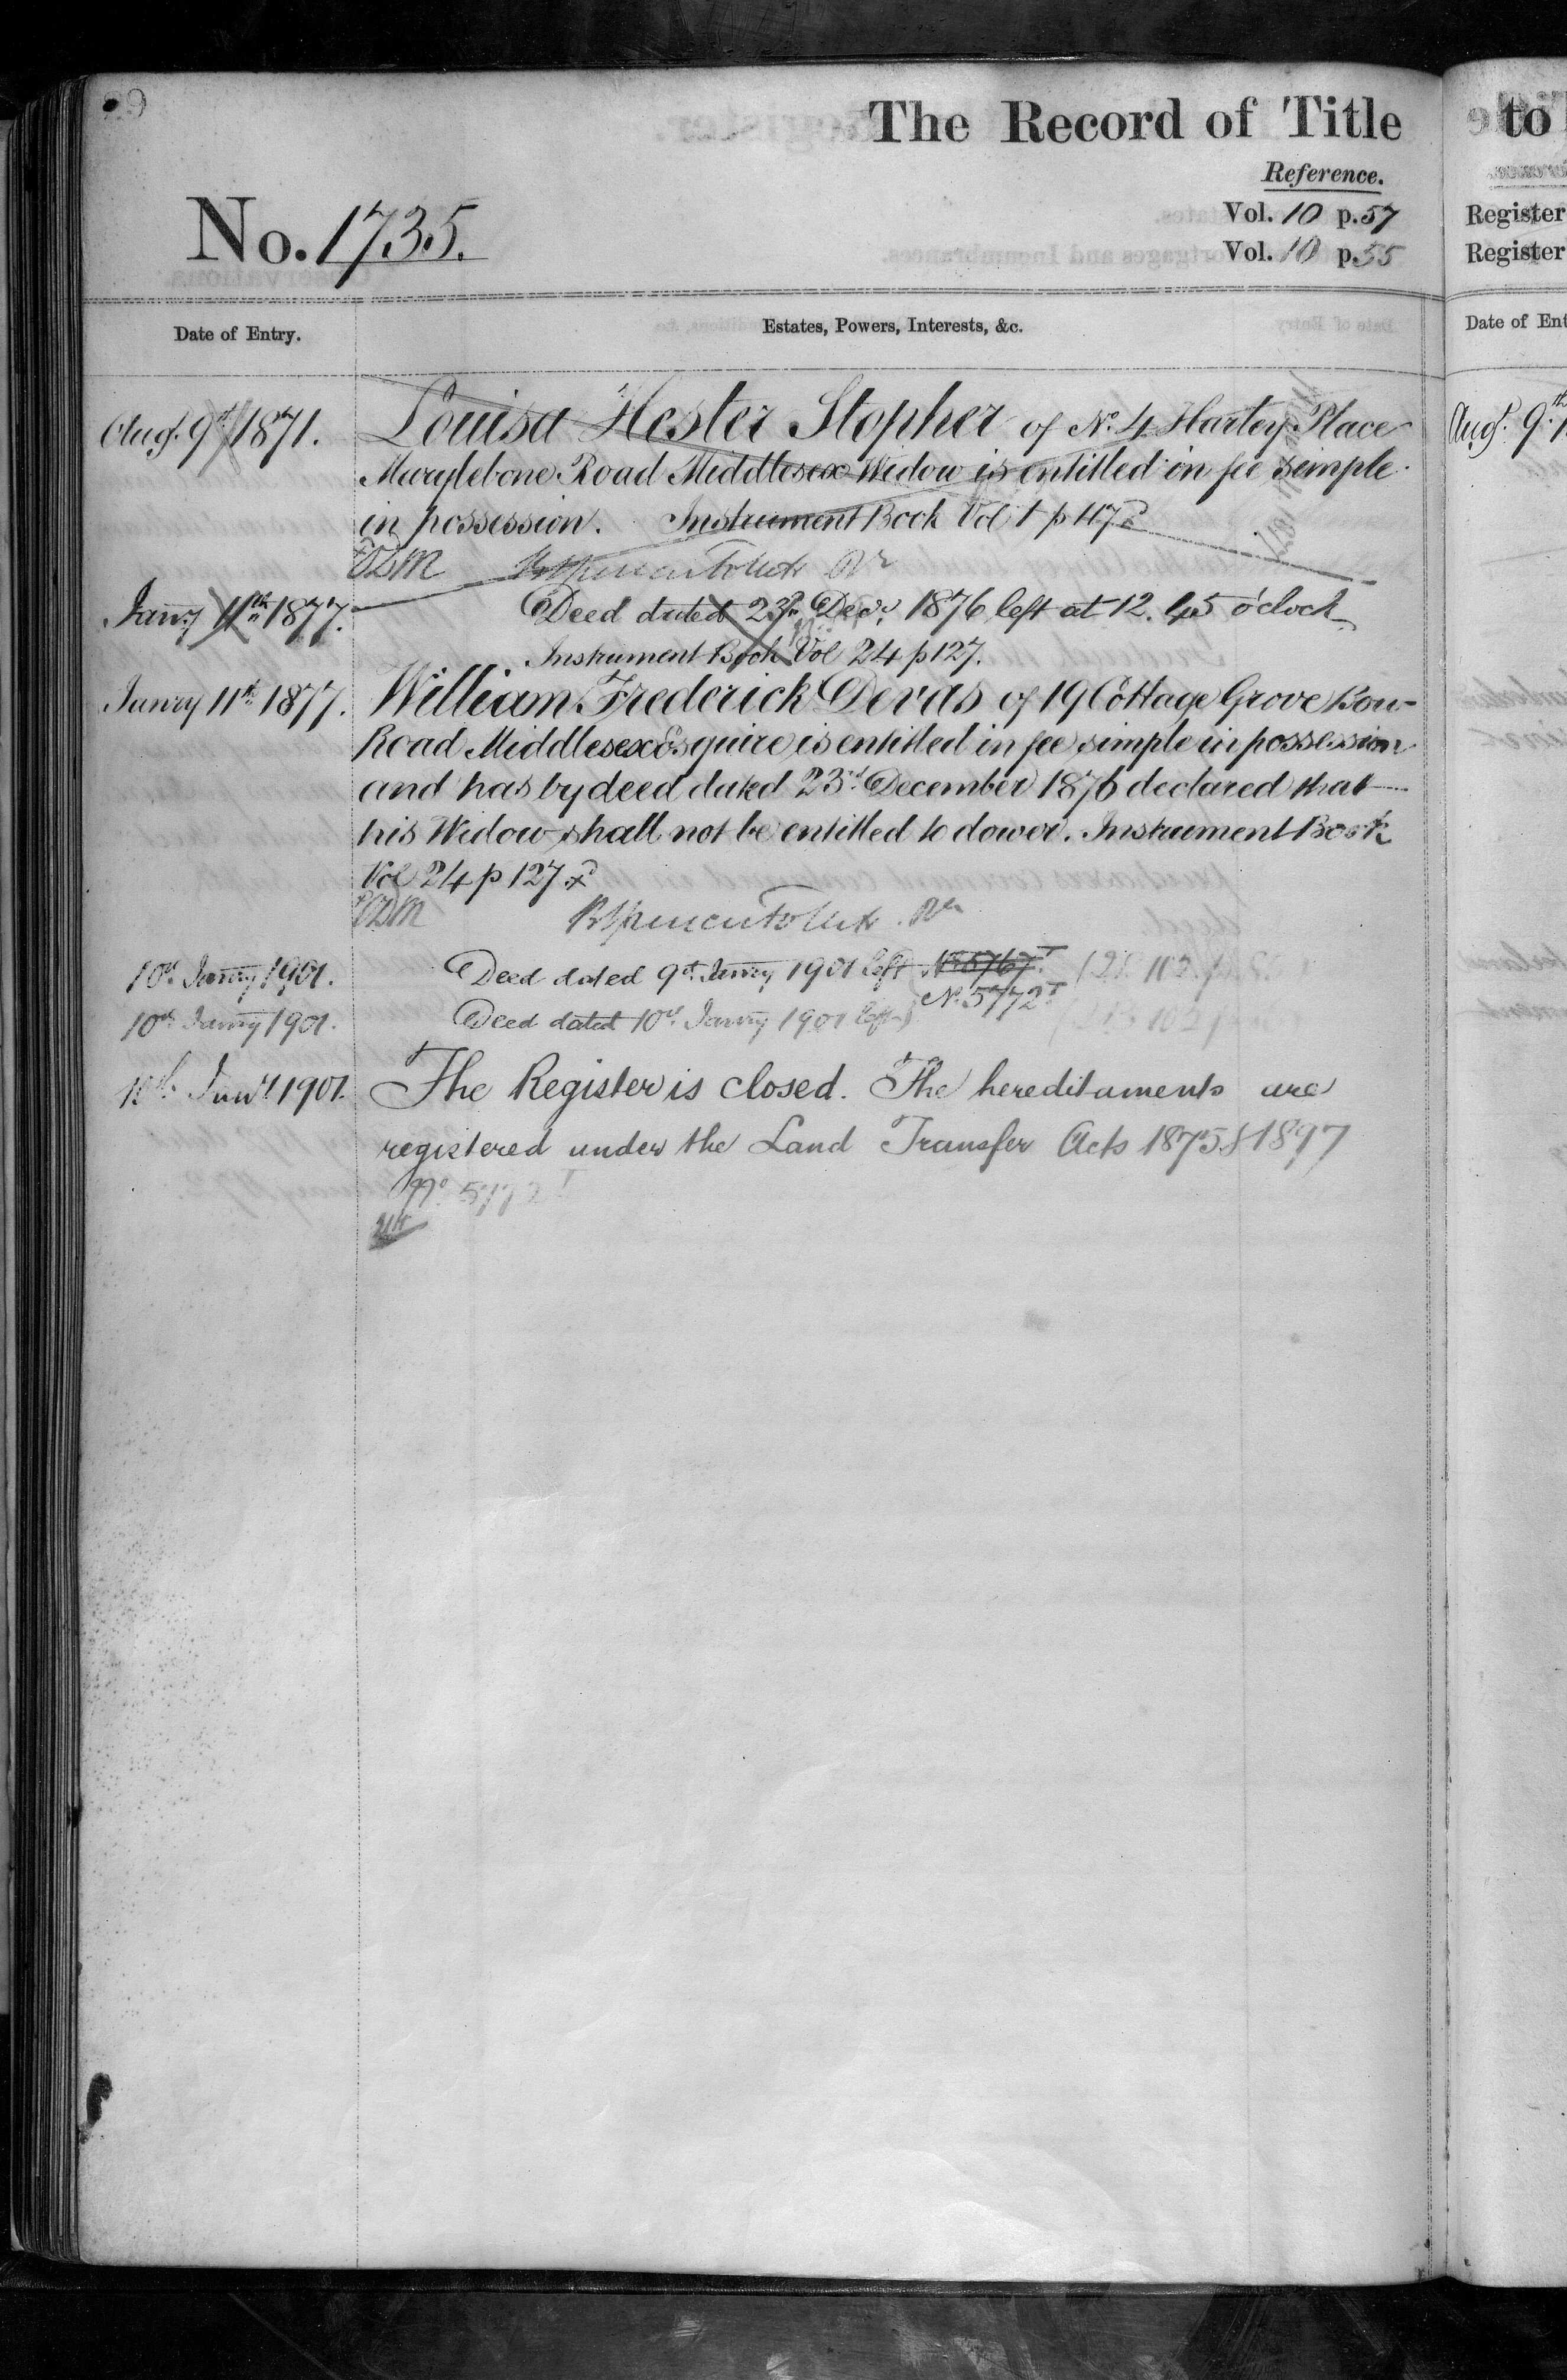 The Record of Title
Reference.
No. 1735.
Vol. 10 p. 57
Vol. 10 p. 55
Date of Entry.
Estates, Powers, Interests, &c.
Augt. 9th 1871.
Louisa Hester Stopher of No. 4 Harley Place
Marylebone Road Middlesex Widow is entitled in fee simple
in possession. Instrument Book Vol 1 p 117
Janry 11th 1877.
Deed dated 23rd Decr. 1876 left at 12.45 o'clock
Instrument Book Vol 24 p 127.
Janry 11th 1877.
William Frederick Devas of 19 Cottage Grove Bow
Road Middlesex Esquire is entitled in fee simple in possession
and has by deed dated 23rd December 1876 declared that
his Widow shall not be entitled to dower. Instrument Book
Vol 24 p 127
10th Janry 1901.
Deed dated 9th Janry 1901 left No. 5767T
10th Janry 1901.
Deed dated 10th Janry 1901 left No. 5772T
10th Janry 1901.
The Register is closed. The hereditaments are
registered under the Land Transfer Acts 1875 & 1897
No. 5772T
to
Register
Register
Date of Ent
Augt. 9th